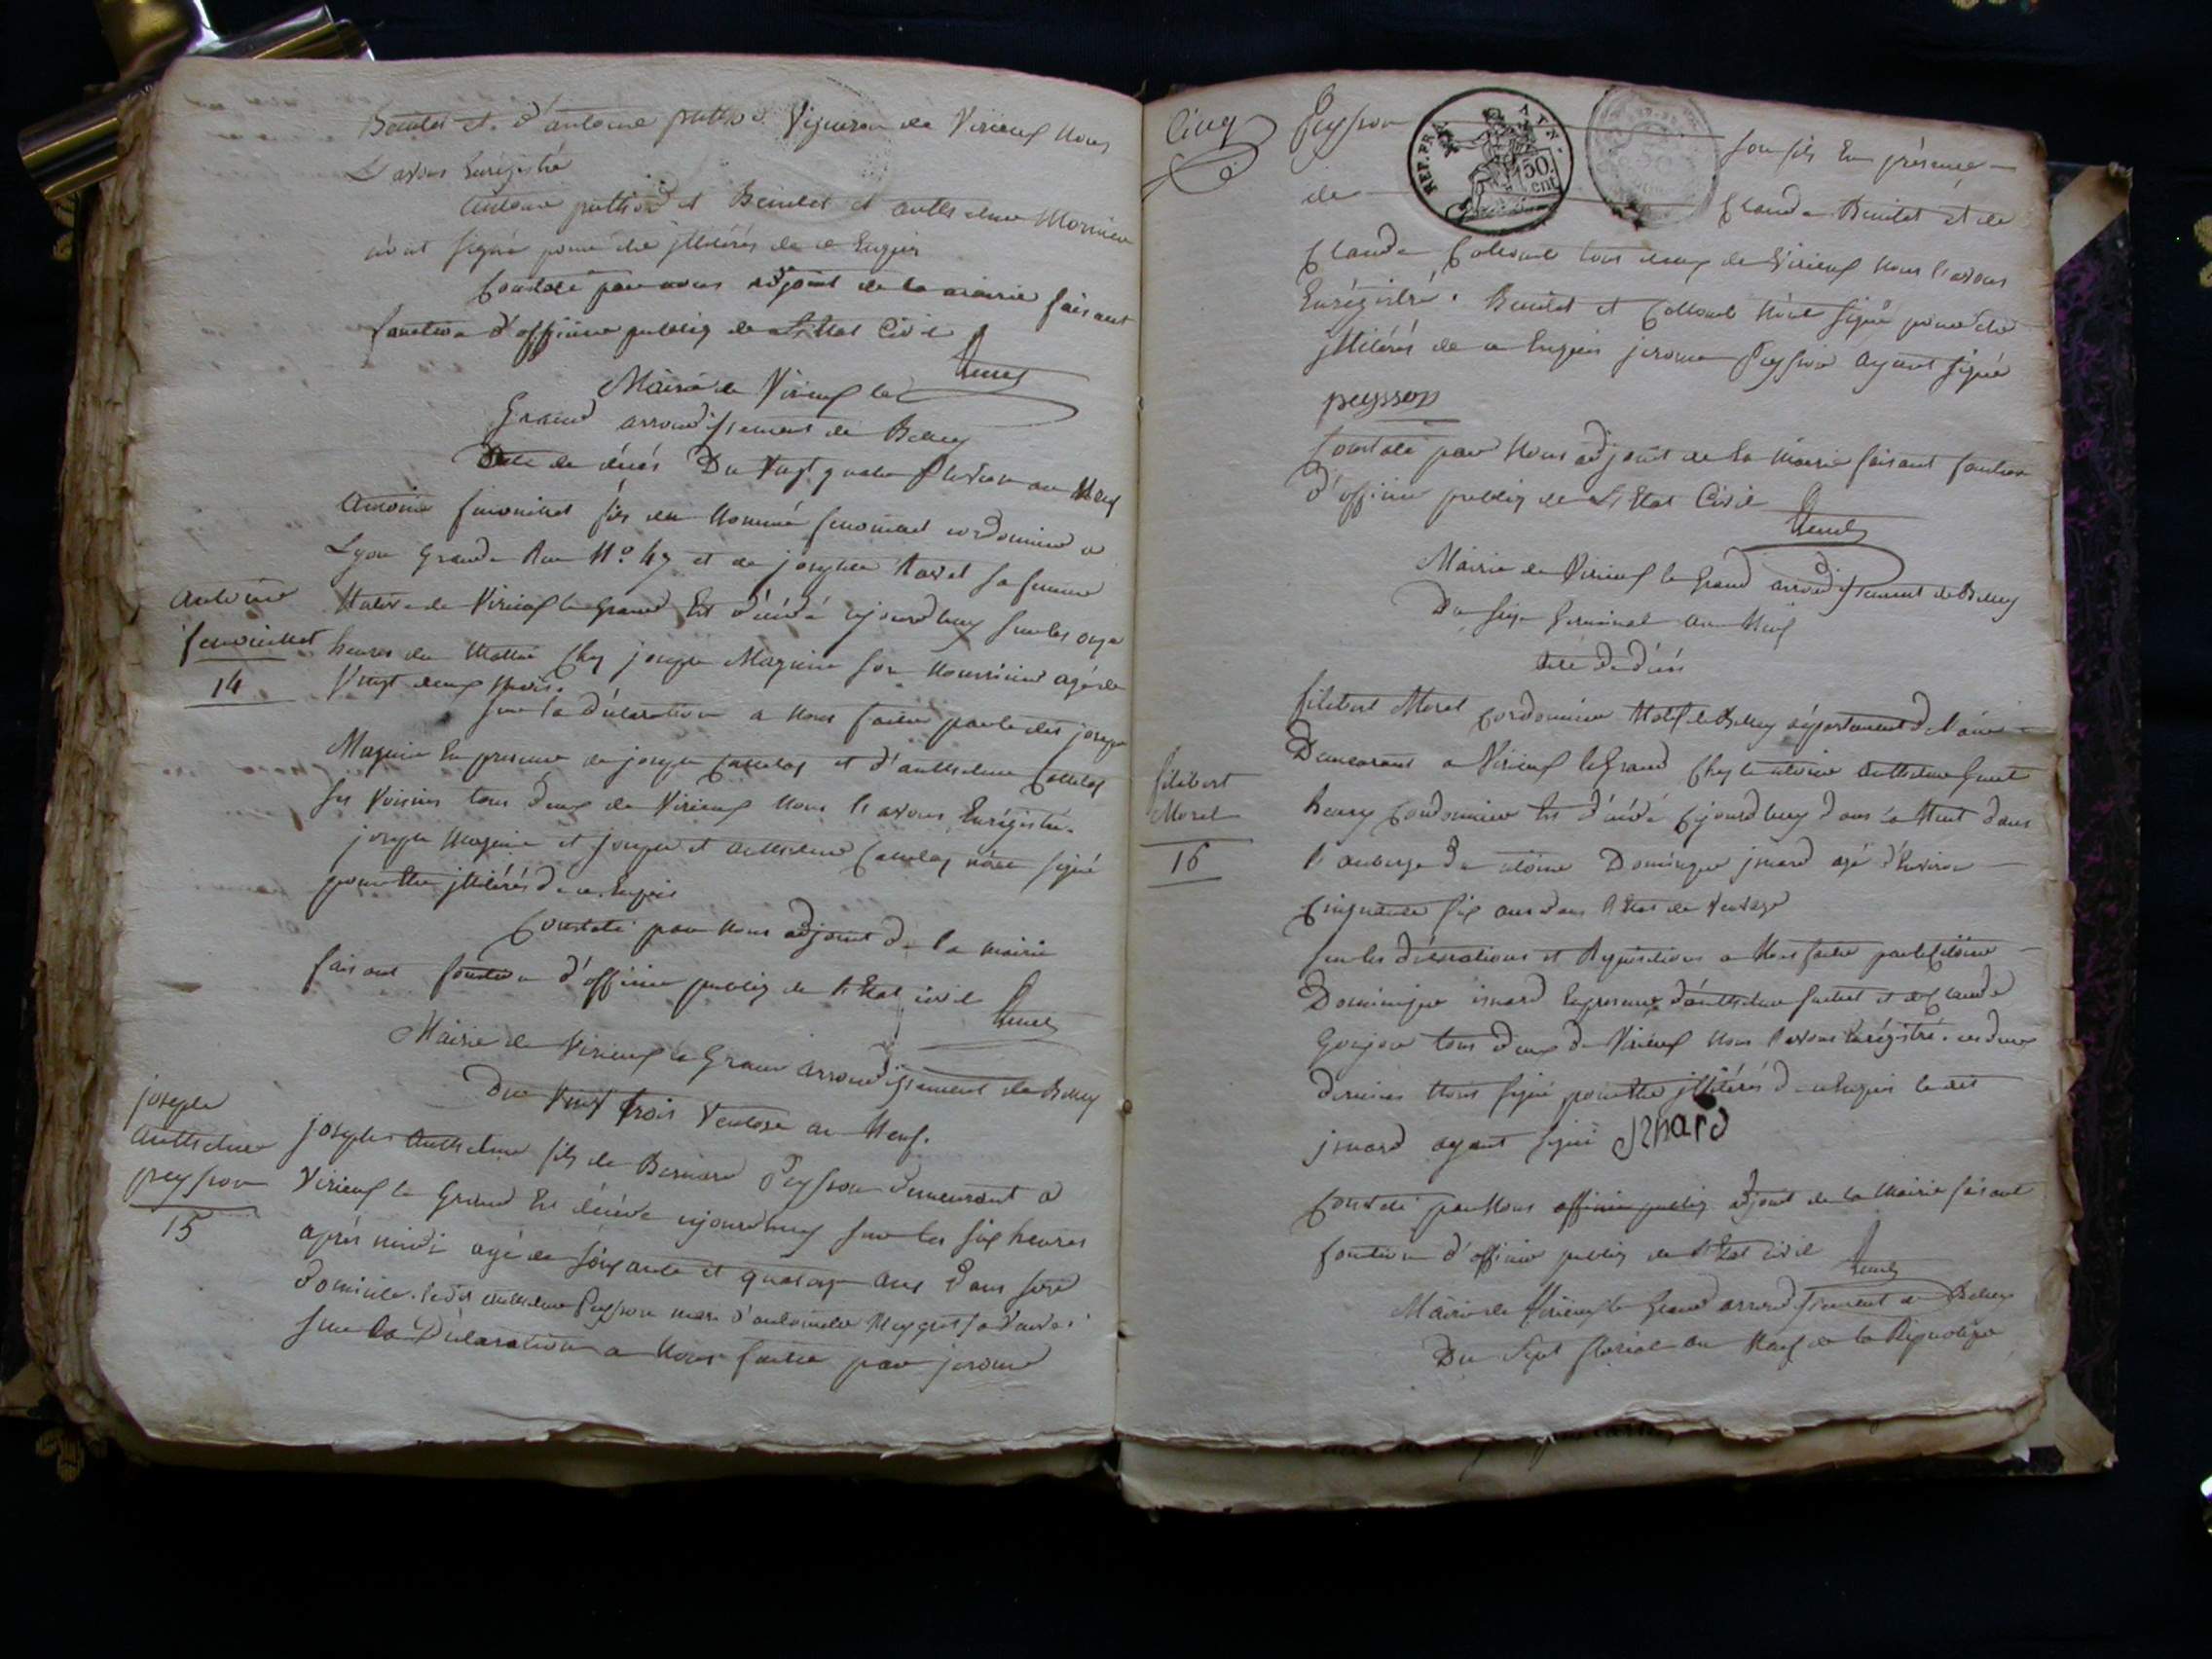 Benitet et d'antoine puthod Vigneron de Virieux nous
L'avons Enregistré
Antoine puthod et Benitet et anthelme Mornieu
n'ont signé pour être illitérés de ce Enquis
Constaté par nous adjoint de la mairie faisant
fonction d'officier publiq de L'Etat Civil
Mairie de Virieux le
Grand arrondissement de Belley
Acte de décés Du Vingt quatre Pluviose an Neuf
Antoine
14
Antoine fils du Nommé cordonnier a
Lyon Grande Rue N.o 47 et de josephte Ravet sa femme
Native de Virieux le Grand Est décédé cejourdhuy sur les onze
heures du Matin Chez joseph Magnin son Nourricier agé de
Vingt deux Mois.
sur la déclaration a Nous faitte par le dit joseph
Magnin En presence de joseph et d'anthelme
ses Voisins tous deux de Virieux Nous l'avons Enrégistré.
joseph Magnin et joseph et anthelme n'ont signé
pour être illitérés de ce Enquis
Constaté par Nous adjoint de la mairie
faisant fonction d'officier publiq de l'Etat civil
Mairie de Virieux le Grand arrondissement de Belley
Du Vingt trois Ventose an Neuf.
joseph
Anthelme
peysson
15
joseph Anthelme fils de Bernard Peysson demeurant a
Virieux le Grand Est décédé cejourdhuy sur les six heures
aprés midi agé de soixante et quatorze ans Dans son
Domicile. le dit anthelme Peysson mari d'antoinette
sur la Déclaration a Nous faitte par jerome
Cinq
Peysson son fils En présence
de Claude Benitet et de
Claude Collomb tous deux de Virieux Nous l'avons
Enrégistré. Benitet et Collomb N'ont signé pour être
illitérés de ce Enquis jerome Peysson ayant signé
peysson
Constaté par Nous adjoint de la Mairie faisant fonction
d'officier publiq de L'Etat Civil
REP. FRA.
50
cnt
Mairie de Virieux le Grand arrondissement de Belley
Du Germinal an Neuf
Acte de décés
filibert
Morel
16
filibert Morel cordonnier Natif de Belley département de l'ain
Demeurant a Virieux le Grand Chez le citoien Anthelme
henry Cordonnier Est décédé Cejourdhuy dans la Nuit dans
l'auberge du citoien Dominique jnard agé d'Environ
Cinquante six ans dans l'Etat de
sur les déclarations et Réquisitions a Nous faitte par le Citoien
Dominique inard En presence d'anthelme et de Claude
Goujon tous deux de Virieux Nous l'avons Enrégistré. ces deux
derniers N'ont signé pour être illitérés de ce Enquis le dit
jnard ayant signé jnard
Constaté par Nous officier publiq adjoint de la Mairie faisant
fonction d'officier publiq de l'Etat Civil
Mairie de Virieux le Grand arrondissement de Belley
Du Sept floréal an Neuf de la République